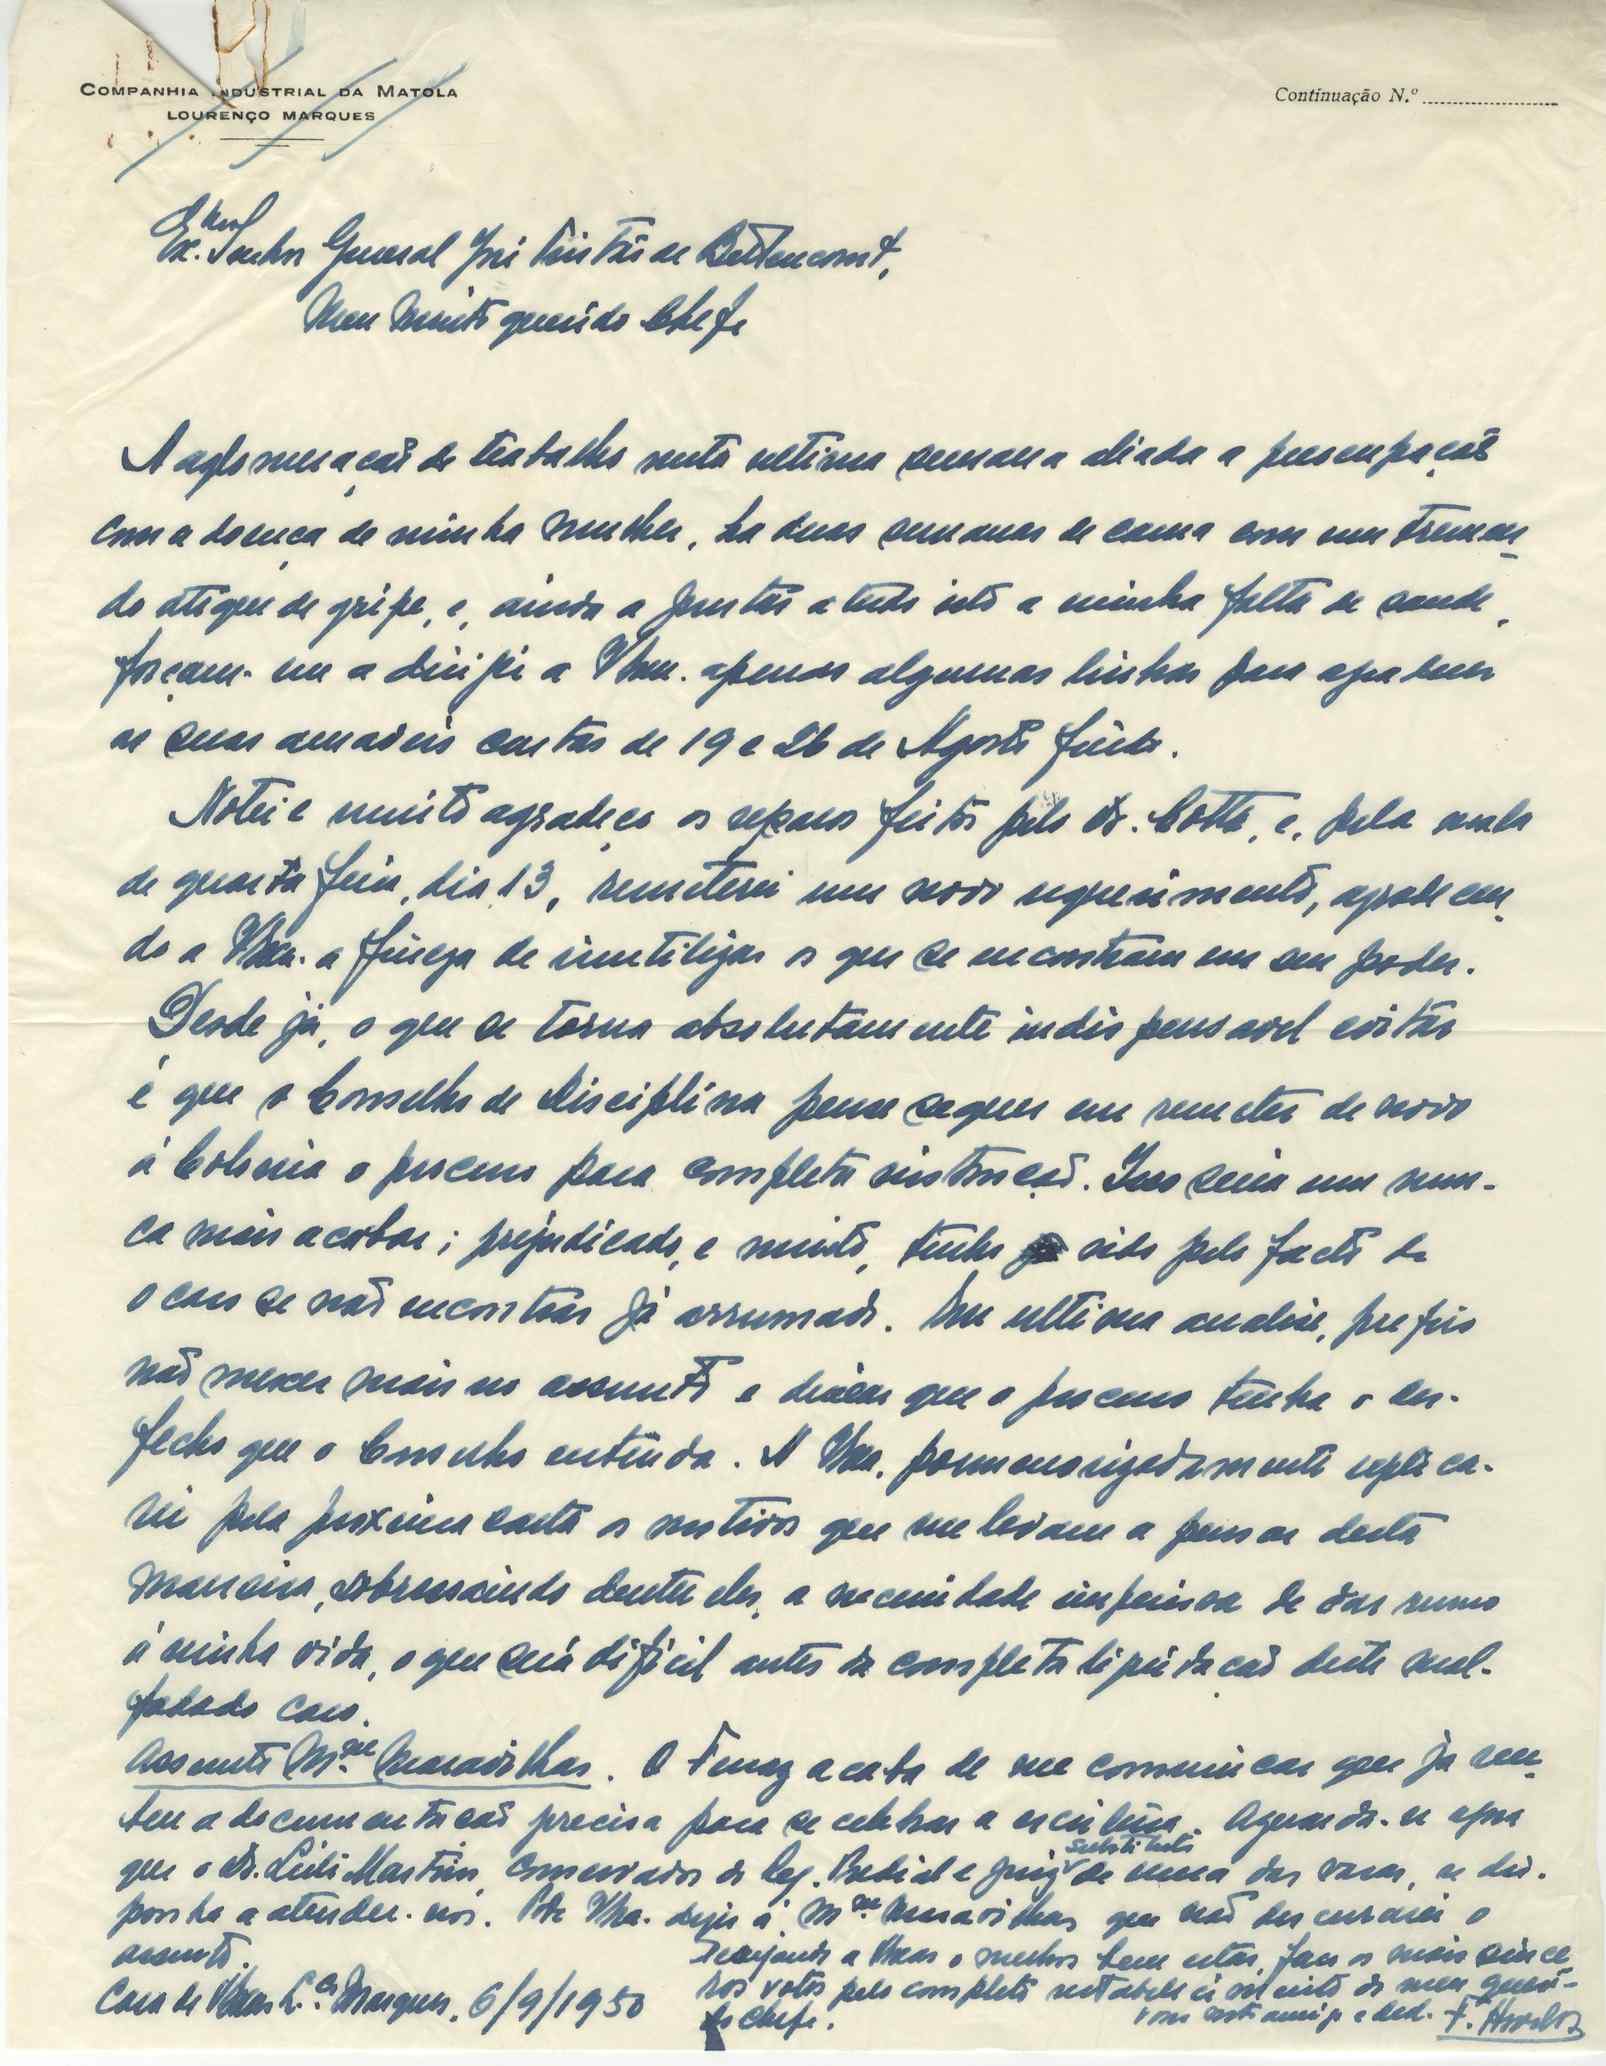 COMPANHIA INDUSTRIAL DA MATOLA
LOURENÇO MARQUES
Continuação N.º
Exmo. Senhor General José Tristão de Bettencourt,
Meu Muito querido Chefe
A aglomeração de trabalho nesta ultima semana aliada a preocupação
com a doença de minha mulher, ha duas semanas de cama com um tremen-
do ataque de gripe, e, ainda a juntar a tudo isto a minha falta de saude,
forçam-me a dirigir a VExa. apenas algumas linhas para agradecer
as suas amaveis cartas de 19 e 26 de Agosto findo.
Notei e muito agradeço os reparos feitos pelo Dr. Cotta, e, pela mala
de quarta feira, dia 13, remeterei um novo requerimento, agradecen-
do a VExa. a fineza de inutilizar os que se encontram em seu poder.
Desde já, o que se torna absolutamente indispensavel evitar
é que o Conselho de Disciplina pense sequer em remeter de novo
á Colonia o processo para completa instrução. Isso seria um nun-
ca mais acabar; prejudicado, e muito, tenho sido pelo facto de
o caso se não encontrar já arrumado. Em ultima analise, prefiro
não mexer mais no assunto e deixar que o processo tenha o des-
fecho que o Conselho entenda. A VExa. pormenorizadamente explica-
rei pela proxima carta os motivos que me levam a pensar desta
maneira, sobressaindo dentre eles, a necessidade imperiosa de dar rumo
á minha vida, o que será dificil antes da completa liquidação deste mal-
fadado caso.
Assunto Mme. Maravilhas. O Ferraz acaba de me comunicar que já reu-
niu a documentação precisa para se celebrar a escritura. Aguarda-se agora
que o Dr. Leite Martins, Conservador do Reg. Predial e Juiz substituto de uma das varas, se dis-
ponha a atender-nos. Pode VExa. dizer á Mme. Maravilhas que não descurarei o
assunto.
Desejando a VExas o melhor bem estar, faz os mais since-
ros votos pelo completo restabelecimento do meu queri-
do Chefe.
Casa de VExas L.ço Marques, 6/9/1950